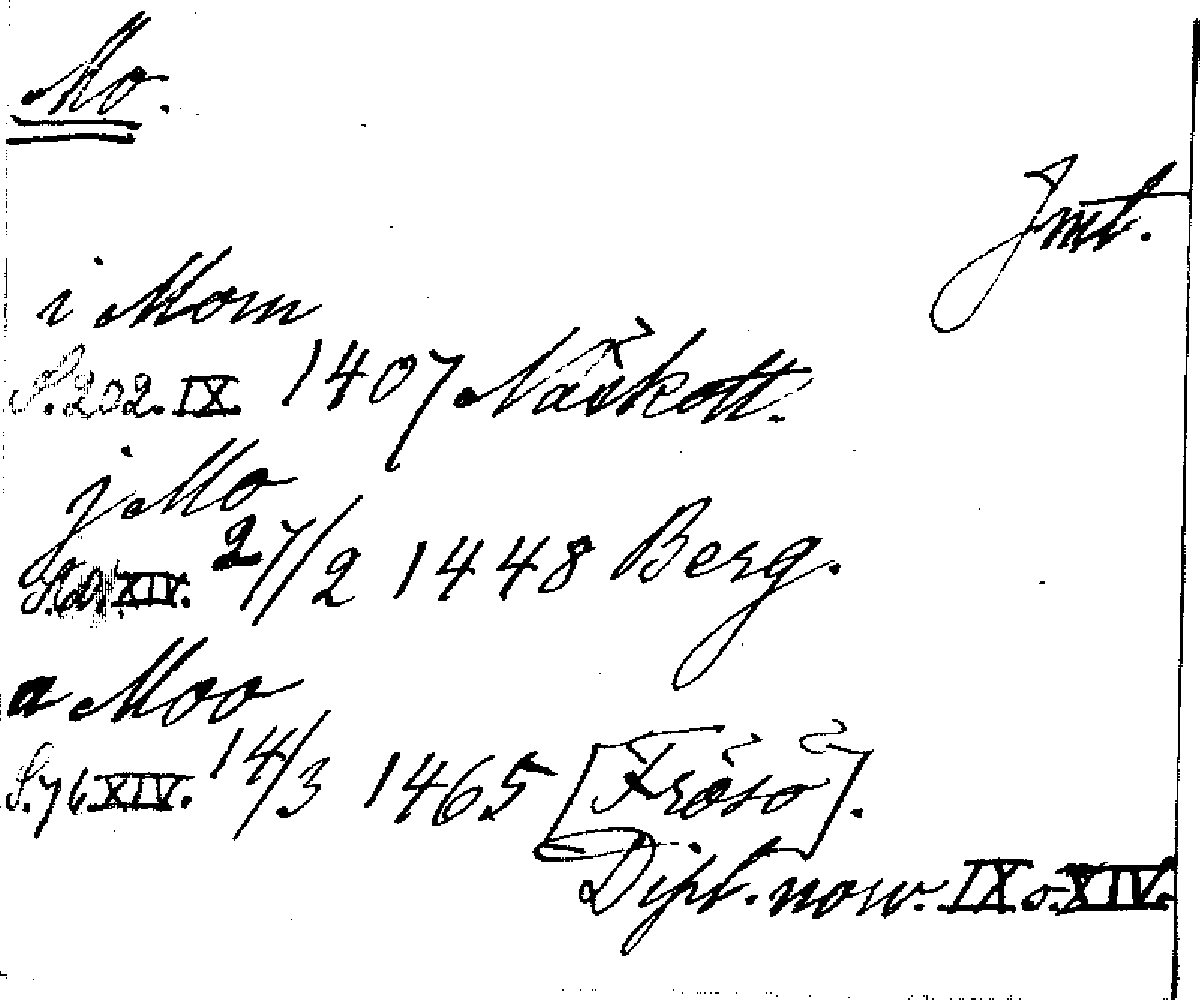 Mo.
Jmt.
i Mom
S. 202. IX. 1407 Näskott.
j Mo
XIV. 27/2 1448 Berg.
a Moo
S. 76 XIV. 14/3 1465 [Frösö].
Dipl. norv. IX o. XIV.